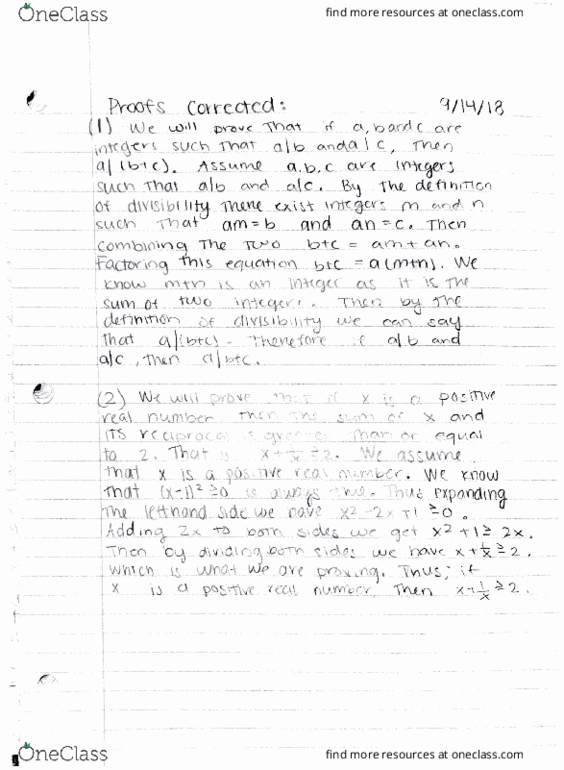 OneClass
find more resources at oneclass.com
Proofs Corrected: 9/14/18
(1) We will prove that if a, b and c are
integers such that a|b and a|c, then
a|(b+c). Assume a,b,c are integers
such that a|b and a|c. By the definition
of divisibility there exist integers m and n
such that am=b and an=c. Then
combining the two b+c = am+an.
Factoring this equation b+c = a(m+n). We
know m+n is an integer as it is the
sum of two integers. Then by the
definition of divisibility we can say
that a|(b+c). Therefore if a|b and
a|c, then a|b+c.
(2) We will prove that if x is a positive
real number then the sum of x and
its reciprocal is greater than or equal
to 2. That is x+1/x ≥2. We assume
that x is a positive real number. We know
that (x-1)² ≥0 is always true. Thus expanding
the lefthand side we have x²-2x+1 ≥0.
Adding 2x to both sides we get x²+1≥ 2x.
Then by dividing both sides we have x+1/x ≥2.
which is what we are proving. Thus, if
x is a positive real number, then x+1/x ≥2.
OneClass
find more resources at oneclass.com